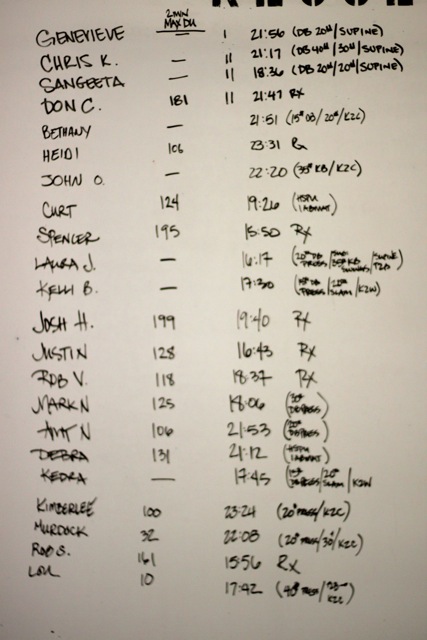 2 MIN
MAX DU
GENEVIEVE — | 21:56 (DB 20#/SUPINE)
CHRIS K. — || 21:17 (DB 40#/30#/SUPINE)
SANGEETA — || 18:36 (DB 20#/20#/SUPINE)
DON C. 181 || 21:47 RX
BETHANY — 21:51 (15# DB/20#/K2C)
HEIDI 106 23:31 Rx
JOHN O. — 22:20 (35# KB/K2C)
CURT 124 19:26 (HSPU 1 ABMAT)
SPENCER 195 15:50 Rx
LAURA J. — 16:17 (20# DB PRESS/ KB SWINGS/SUPINE
KELLI B. — 17:30 (PRESS/ SLAM/K2W)
JOSH H. 199 19:40 Rx
JUSTIN 128 16:43 Rx
ROB V. 118 18:37 Rx
MARK N 125 18:06
AMY N 106 21:53
DEBRA 131 21:12 (HSPU 1 ABMAT)
KEDRA — 17:45 /20# SLAM/K2W
KIMBERLEE 100 23:24 (20# PRESS/K2C)
MURDOCK 32 22:08 (20# PRESS/30#/K2C)
ROB S. 161 15:56 Rx
LORI 10 17:42 (40# PRESS/ K2C)